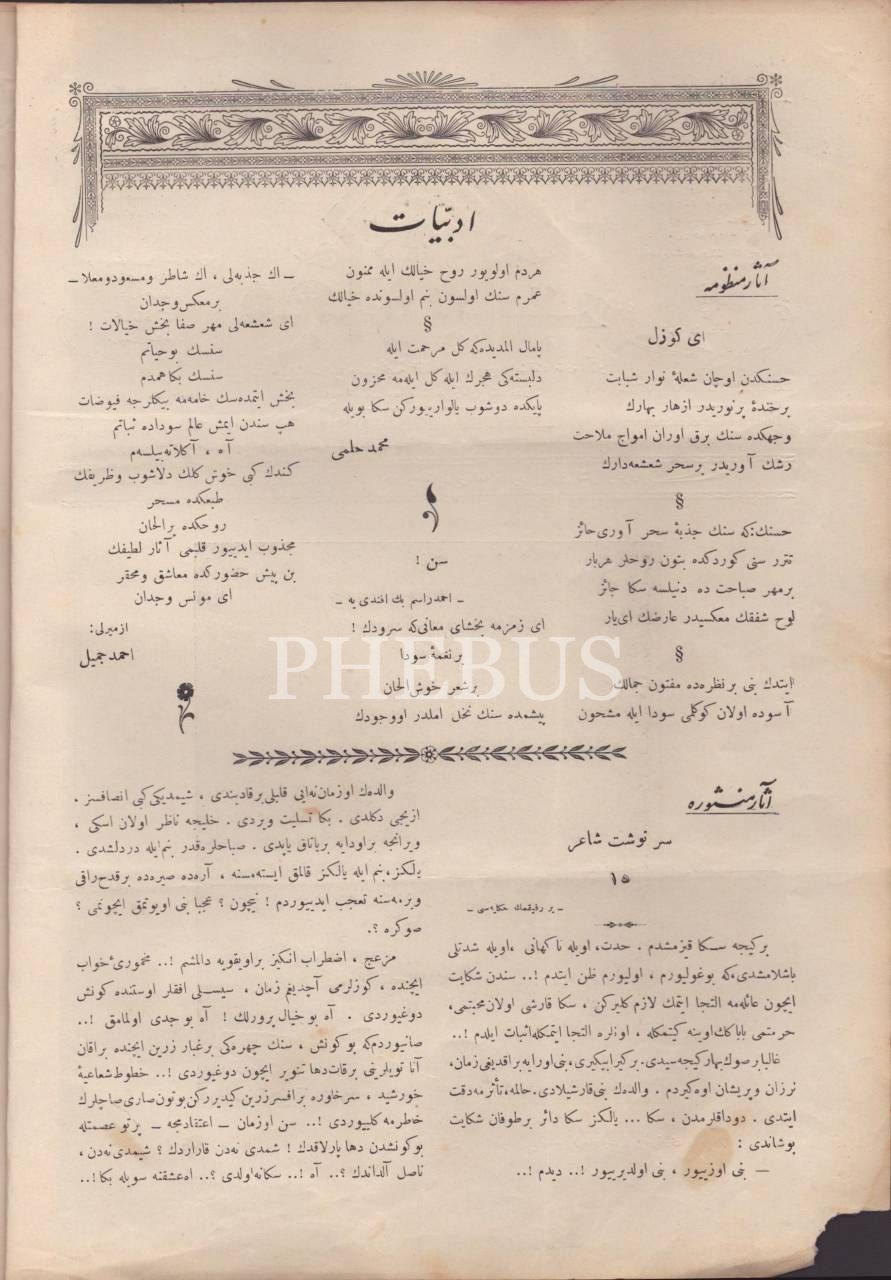 ادبيّات
آثار منظومه
ای كوزل
حسنكدن اوچان شعلهٔ نوار شبابت
برخندهٔ پرنوریدر ازهار بهارك
وجهكده سنك برق اوران امواج ملاحت
رشك آوریدر برسحر شعشعه‌دارك
§
حسنك‌كه سنك جذبهٔ سحر آوری حائز
تترر سنی كوردكده بتون روحلر هربار
برمهر صباحت ده دنیلسه سكا جائز
لوح شفقك معكسیدر عارضك ای‌یار
§
ایتدك بنی برنظره‌ده مفتون جمالك
آسوده اولان كوكلمی سودا ایله مشحون
هردم اولویور روح خیالك ایله ممنون
عمرم سنك اولسون بنم اولسونده خیالك
§
پامال المدیده‌كه كل مرحمت ایله
دلبسته‌كی هجرك ایله كل ایله‌مه محزون
پایكده دوشوب یالوارییوركن سكا بویله
محمد حلمی
سن !
ـ احمدراسم بك افندی یه ـ
ای زمزمه بخشای معانی‌كه سرودك !
برنغمهٔ سودا
برشعر خوش‌الحان
پیشمده سنك نخل املدر اووجودك
ـ اك جذبه‌لی ، اك شاطر ومسعودومعلا ـ
برمعكس وجدان
ای شعشعه‌لی مهر صفا بخش خیالات !
سنسك بوحیاتم
سنسك بكا همدم
بخش ایتمده‌سك خامه‌مه بیكلرجه فیوضات
هپ سندن ایمش عالم سوداده ثباتم
آه ، آكلاته‌بیلسه‌م
كندك كبی خوش كلك دلاشوب وظریفك
طبعكده مسحر
روحكده پرالحان
مجذوب ایدییور قلبمی آثار لطیفك
بن پیش حضوركده معاشق ومحقر
ای مونس وجدان
ازمیرلی:
احمد جمیل
PHEBUS
آثار منثوره
سرنوشت شاعر
١٥
ـ بر رفیقمك حكایه‌سی ـ
بركیجه سكا قیزمشدم . حدت، اویله ناكهانی ،اویله شدتلی
باشلامشدی‌كه بوغولیورم ، اولیورم ظن ایتدم !.. سندن شكایت
ایچون عائله‌مه التجا ایتمك لازم كلیركن ، سكا قارشی اولان محبتمی،
حرمتمی باباكك اوینه كیتمكله ، اونلره التجا ایتمكله اثبات ایلدم !..
غالبا برصوك بهار كیجه‌سیدی. بنی اورایه براقدیغی زمان،
لرزان وپریشان اوه كیردم . والده‌ك بنی قارشیلادی. حالمه، تأثرمه دقت
ایتدی . دوداقلرمدن ، سكا ... یالكز سكا دائر برطوفان شكایت
بوشاندی :
— بنی اوزییور ، بنی اولدیرییور !.. دیدم !..
والده‌ك اوزمان نه‌ایی قلبلی برقادیندی ، شیمدیكی كبی انصافسز .
ازیجی دكلدی . بكا تسلیت ویردی . خلیجه ناظر اولان اسكی ،
ویرانجه براودایه بریاتاق یاپدی . صباحلره‌قدر بنم‌ایله دردلشدی .
یالكز، بنم ایله یالكز قالمق ایسته‌مسنه ، آره‌ده صیره‌ده برقدح‌راقی
ویرمه‌سنه تعجب ایدییوردم ! نیچون ؟ عجبا بنی اویوتمق ایچونمی ؟
صوكره ؟.
مزعج ، اضطراب انكیز براویقویه دالمشم !.. مخموری‌ٔ خواب
ایچنده ، كوزلرمی آچدیغم زمان ، سیسلی افقلر اوستنده كونش
دوغیوردی . آه بوخیال پرورلك ! آه بوجدی اولمامق !..
صانیوردم‌كه بوكونش ، سنك چهره‌كی برغبار زرین ایچنده براقان
آنا تویلرینی برقات‌دها تنویر ایچون دوغیوردی !.. خطوط شعاعیهٔ
خورشید ، سرخاوره برافسر زرین كیدیرركن بوتون‌صاری‌صاچلرك
خاطرمه كلییوردی !.. سن اوزمان ـ اعتقادمجه ـ پرتو عصمتله
بوكونشدن دها پارلاقدك ! شمدی نه‌دن قاراردك ؟ شیمدی‌نه‌دن ،
ناصل آلداندك ؟.. آه !.. سكانه‌اولدی ؟.. اه‌عشقنه سویله بكا !..